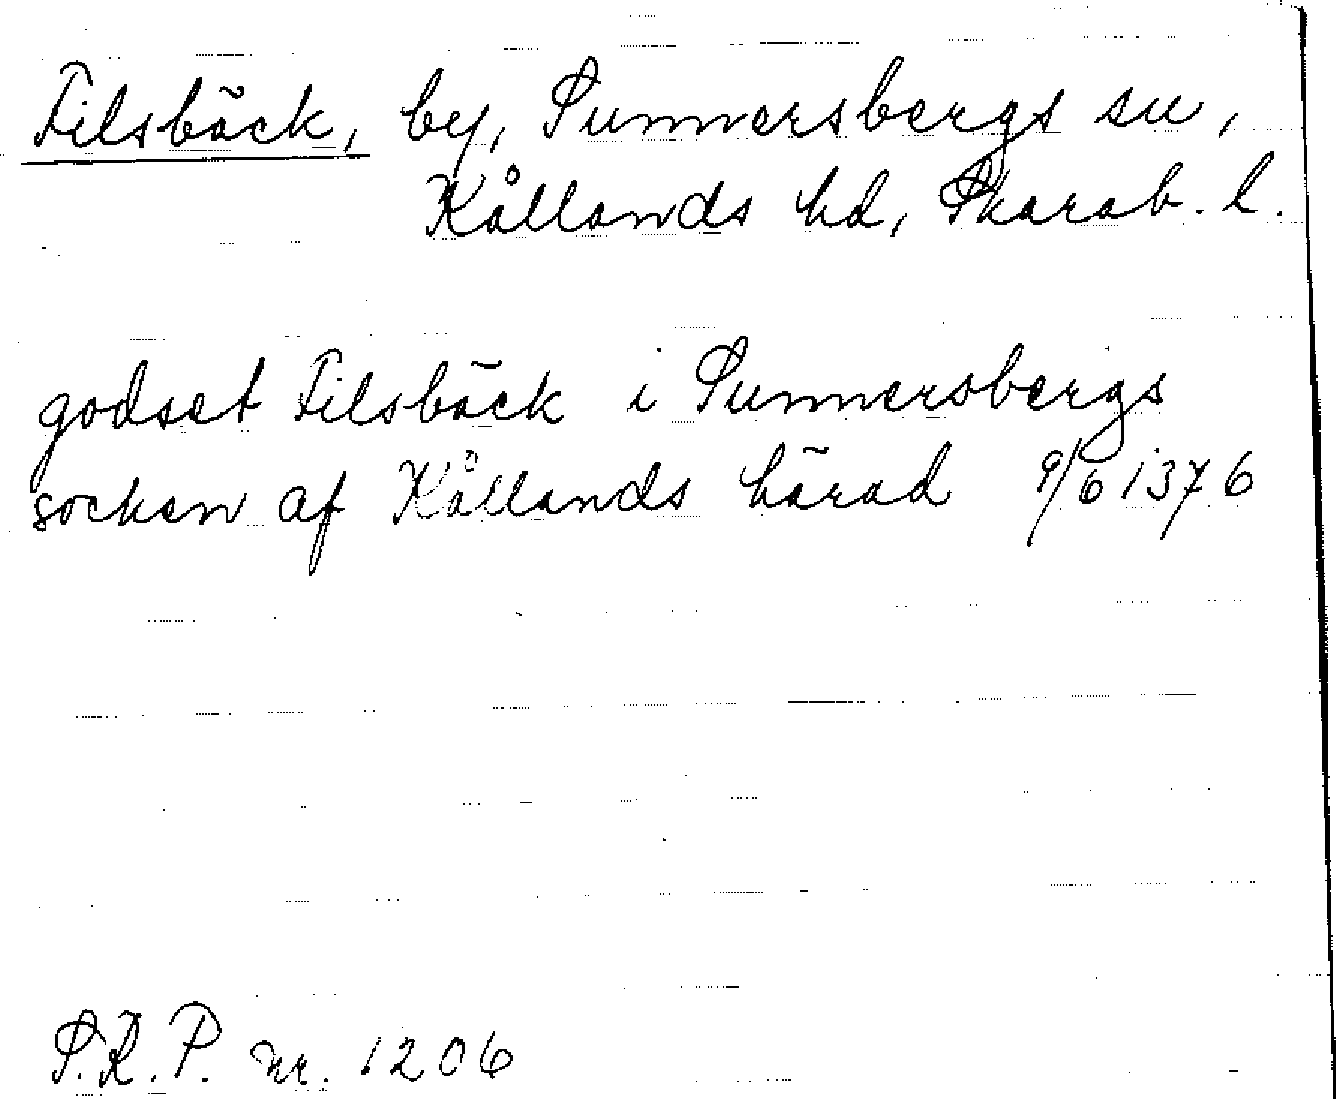 Filsbäck, by, Sunnersbergs sn,
Kållands hd, Skarab. l.
godset Filsbäck i Sunnersbergs
socken af Kållands härad 9/6 1376
S.R.P. nr. 1206